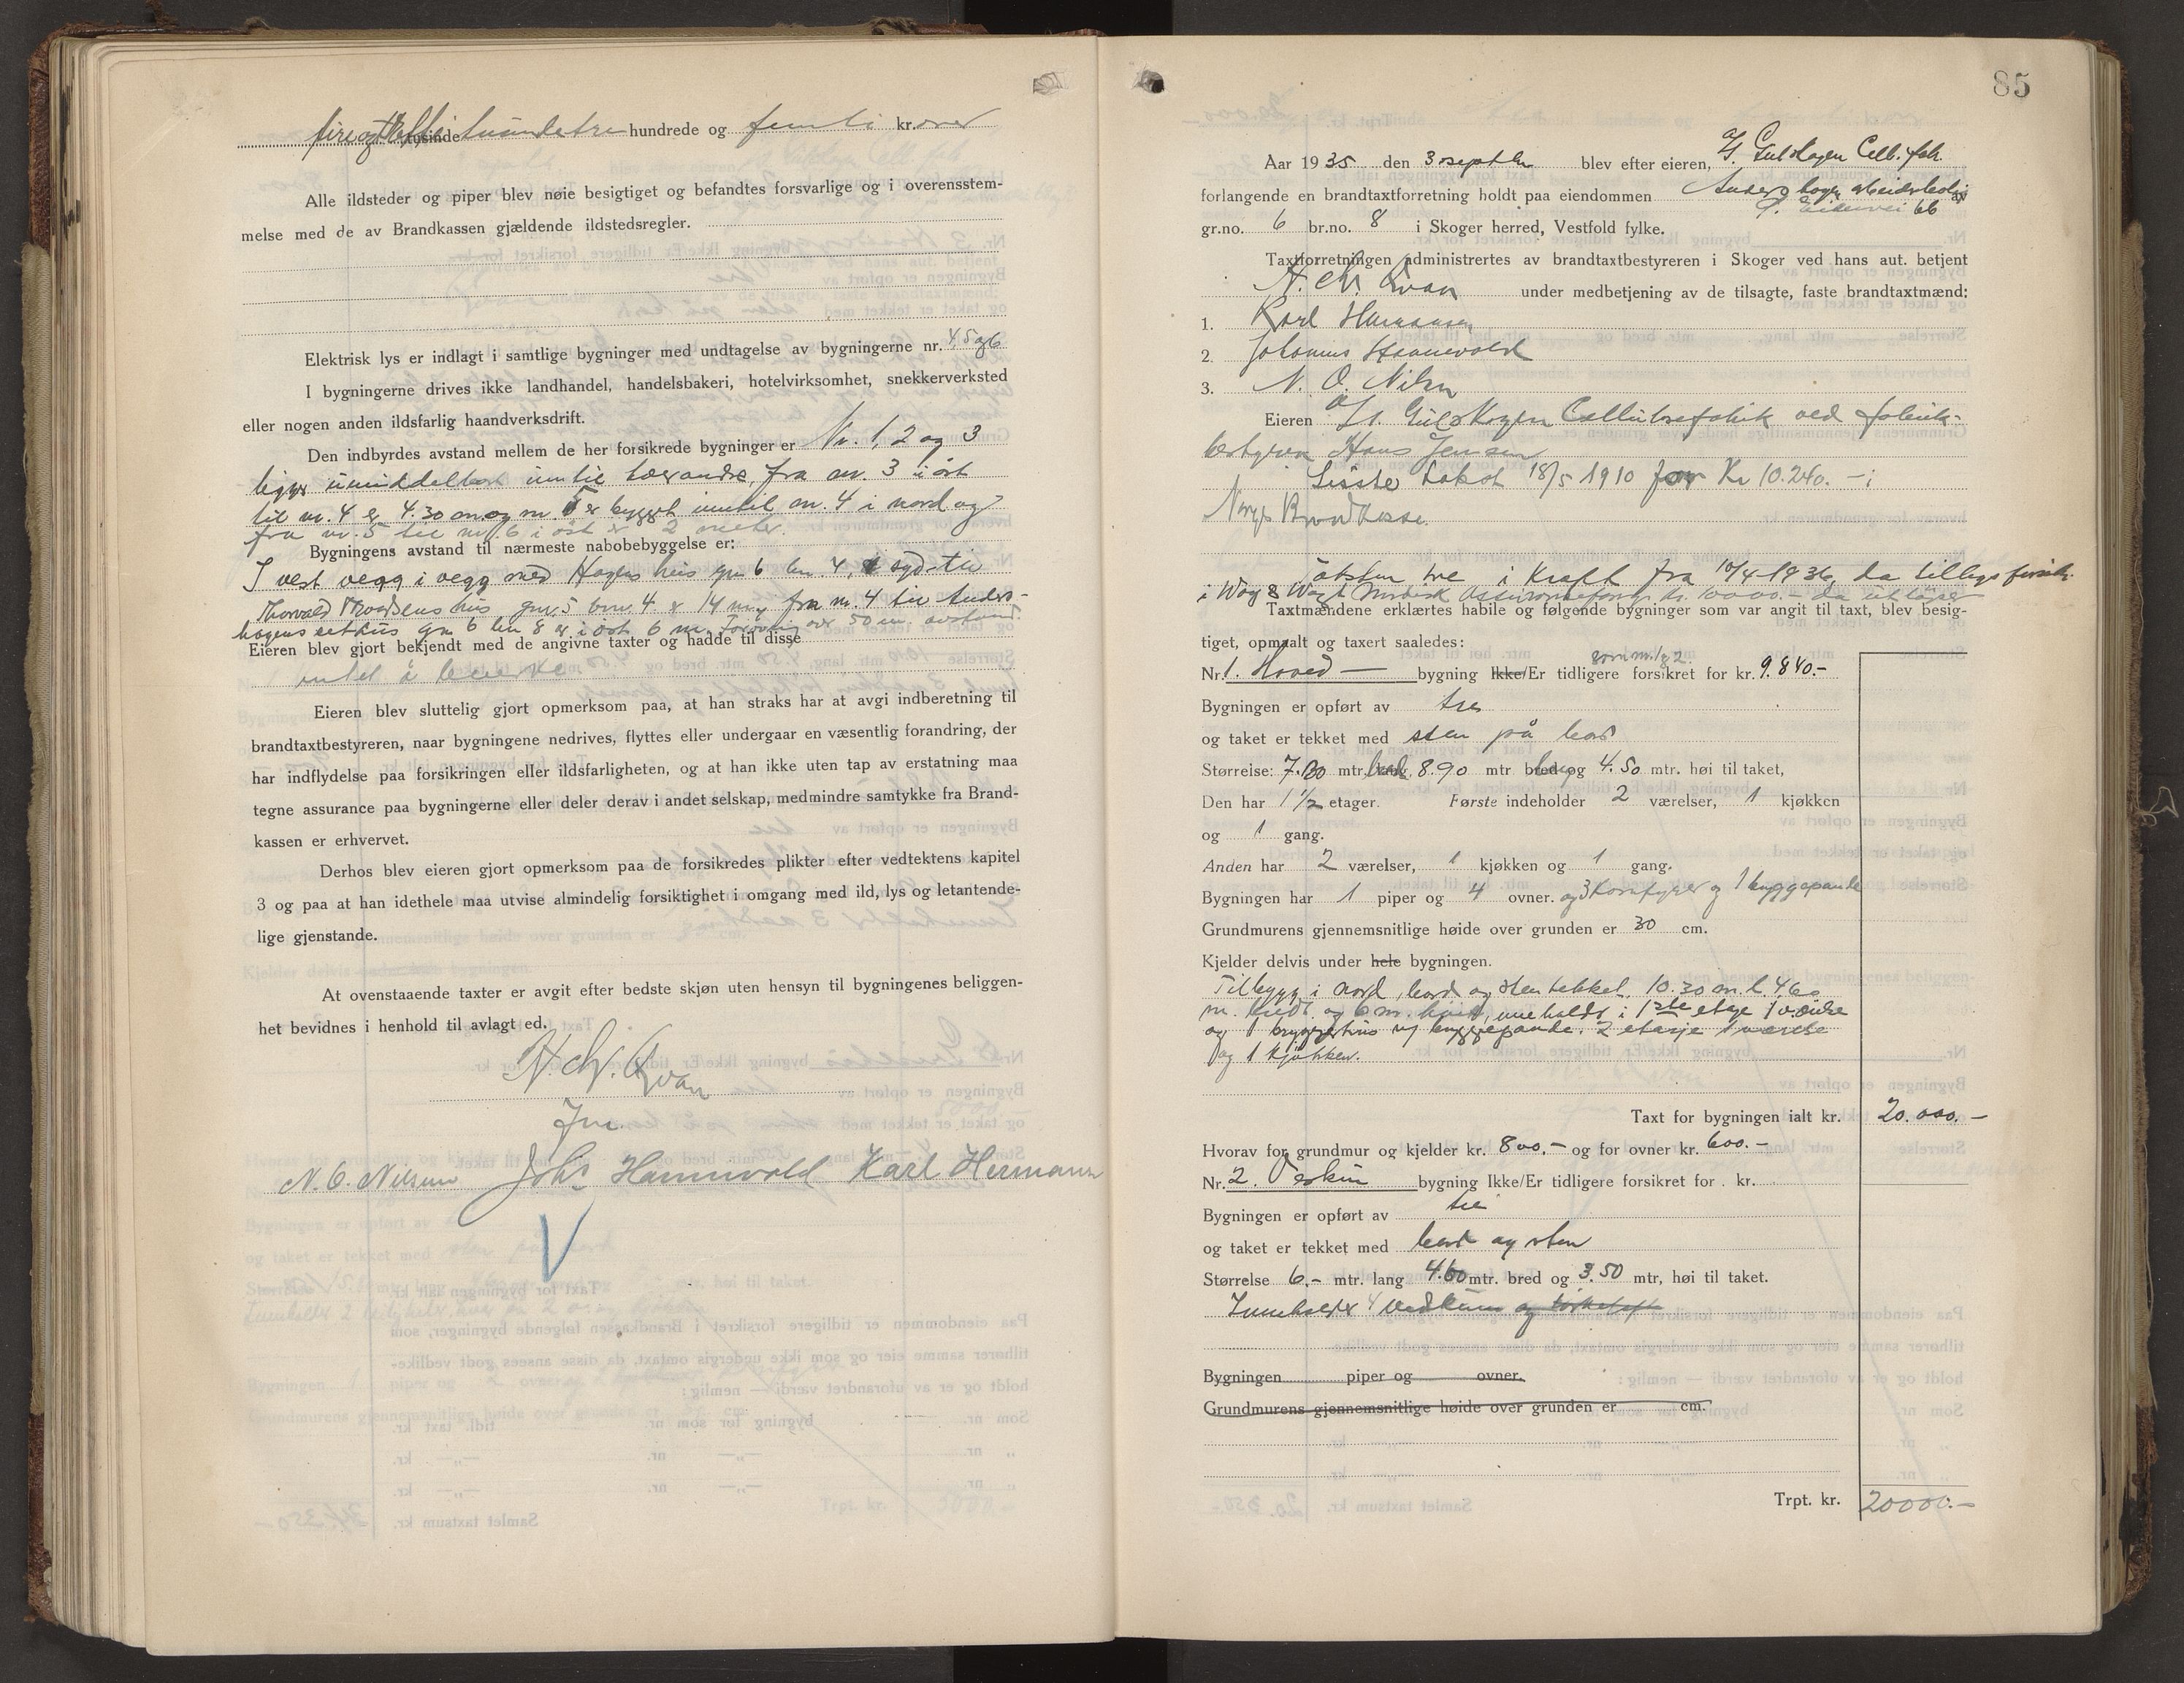 fire og tusinde hundrede og femti kroner
Alle ildsteder og piper blev nøie besigtiget og befandtes forsvarlige og i overensstem-
melse med de av Brandkassen gjældende ildstedsregler.
Elektrisk lys er indlagt i samtlige bygninger med undtagelse av bygningerne nr. 4, 5 og 6
I bygningerne drives ikke landhandel, handelsbakeri, hotelvirksomhet, snekkerverksted
eller nogen anden ildsfarlig haandverksdrift.
Den indbyrdes avstand mellem de her forsikrede bygninger er Nr. 1, 2 og 3
ligger umiddelbart inntil hverandre, fra nr. 3 i öst
til nr. 4 er 4.30 m og nr. 5 er bygget inntil nr. 4 i nord og
fra nr. 5 til nr. 6 i öst er 2 meter.
Bygningens avstand til nærmeste nabobebyggelse er:
I vest vegg i vegg med Hagens hus gnr 6 bnr. 4, syd til
Thorvald hus gnr. 5 bnr. 4 er 14 m, fra nr. 4 til Anders-
hagens uthus gnr 6 bnr 8 er i öst 6 m. Forövrig over 50 m. avstand.
Eieren blev gjort bekjendt med de angivne taxter og hadde til disse
intet å bemerke
Eieren blev sluttelig gjort opmerksom paa, at han straks har at avgi indberetning til
brandtaxtbestyreren, naar bygningene nedrives, flyttes eller undergaar en væsentlig forandring, der
har indflydelse paa forsikringen eller ildsfarligheten, og at han ikke uten tap av erstatning maa
tegne assurance paa bygningerne eller deler derav i andet selskap, medmindre samtykke fra Brand-
kassen er erhvervet.
Derhos blev eieren gjort opmerksom paa de forsikredes plikter efter vedtektens kapitel
3 og paa at han idethele maa utvise almindelig forsiktighet i omgang med ild, lys og letantende-
lige gjenstande.
At ovenstaaende taxter er avgit efter bedste skjøn uten hensyn til bygningenes beliggen-
het bevidnes i henhold til avlagt ed.
N. Chr. Qvan
Jnr.
N. O. Nilsen Johs Hannevold Karl Hermansen
85
Aar 1935 den 30 septbr blev efter eieren, A/S Gulskogen Cell. fab.
forlangende en brandtaxtforretning holdt paa eiendommen Andershagen arbeiderbolig
66
gr.no. 6 br.no. 8 i Skoger herred, Vestfold fylke.
Taxtforretningen administrertes av brandtaxtbestyreren i Skoger ved hans aut. betjent
N. Chr. Qvan under medbetjening av de tilsagte, faste brandtaxtmænd:
1. Karl Hermansen
2. Johannes Hannevold
3. N. O. Nilsen
Eieren A/S. Gulskogen Cellulosefabrik ved fabrik-
bestyrer Hans Jensen
Siste takst 18/5 1910 for Kr 10.240. – i
Norges Brandkasse.
Taksten tre i Kraft fra 10/4-1936, da tilleggsforsik.
i Norsk Assuranceforen. kr. 10000.- da utløper
Taxtmændene erklærtes habile og følgende bygninger som var angit til taxt, blev besig-
tiget, opmaalt og taxert saaledes:
Nr. 1. Hoved – bygning Ikke/Er tidligere forsikret for kr. 9.840.- som nr. 1 og 2
Bygningen er opført av tre
og taket er tekket med sten på bord
Størrelse: 7.80 mtr. bred, 8.90 mtr lang og 4.50 mtr. høi til taket,
Den har 1 1/2 etager. Første indeholder 2 værelser, 1 kjøkken
og 1 gang.
Anden har 2 værelser, 1 kjøkken og 1 gang.
Bygningen har 1 piper og 4 ovner. og 3 komfyrer og 1 bryggepande
Grundmurens gjennemsnitlige høide over grunden er 30 cm.
Kjelder delvis under hele bygningen.
Tilbygg i nord, bord og sten tekket. 10.30 m. l. 4.60
m. bredt og 6 m. høit, inneholder i 1ste etage 1 værelse
og 1 bryggerhus m/ bryggepande. 2 etasje 1 værelse
og 1 kjökken.
Taxt for bygningen ialt kr. 20.000.–
Hvorav for grundmur og kjelder kr. 800.– og for ovner kr. 600.–
Nr. 2. Veskur bygning Ikke/Er tidligere forsikret for kr.
Bygningen er opført av tre
og taket er tekket med bord og sten
Størrelse 6.- mtr. lang 4.60 mtr. bred og 3.50 mtr, høi til taket.
Inneholder 4 vedrum og
Bygningen piper og ovner.
Grundmurens gjennemsnitlige høide over grunden er cm.
Trpt. kr. 20000.–